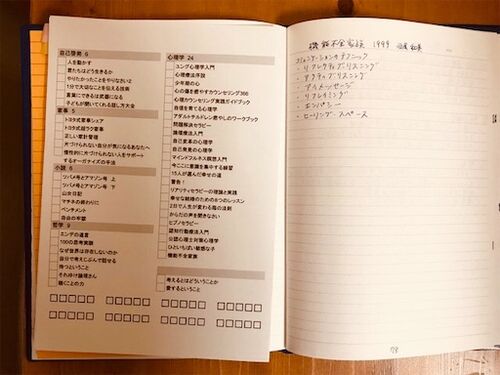 自己啓発 6
人を動かす
君たちはどう生きるか
やりたかったことをやりなさい2
1分で大切なことを伝える技術
言葉にできるは武器になる
子どもが聞いてくれる話し方大全
家事 5
トヨタ式家事シェア
トヨタ式超ラク家事
正しい家計管理
片づけられない自分が気になるあなたへ
慢性的に片づけられない人をサポート
するオーガナイズの手法
小説 6
ツバメ号とアマゾン号 上
ツバメ号とアマゾン号 下
山女日記
マチネの終わりに
ペンチメント
自由の牢獄
哲学 9
エンデの遺言
100の思考実験
なぜ世界は存在しないのか
自分で考えじぶんで話せる
待つということ
それゆけ論理さん
聴くことの力
心理学 24
ユング心理学入門
心理療法序説
少年期の心
心の傷を癒やすカウンセリング366
心理カウンセリング実践ガイドブック
自信を育てる心理学
アダルトチルドレン癒やしのワークブック
問題解決セラピー
論理療法入門
自己変革の心理学
自己発見の心理学
マインドフルネス瞑想入門
今ここに意識を集中する練習
15人が選んだ幸せの道
警告!
リアリティセラピーの理論と実践
幸せな結婚のための8つのレッスン
2日で人生が変わる箱の法則
からだの声を聞きなさい
ヒプノセラピー
認知行動療法入門
公認心理士対策心理学
ひといちばい敏感な子
機能不全家族
考えるとはどういうことか
愛するということ
機能不全家族 1999
コミュニケーションのテクニック
・リフレクティブリスニング
・アクティブリスニング
・アイメッセージ
・リフレイミング
・エンパシー
・ヒーリングスペース
78